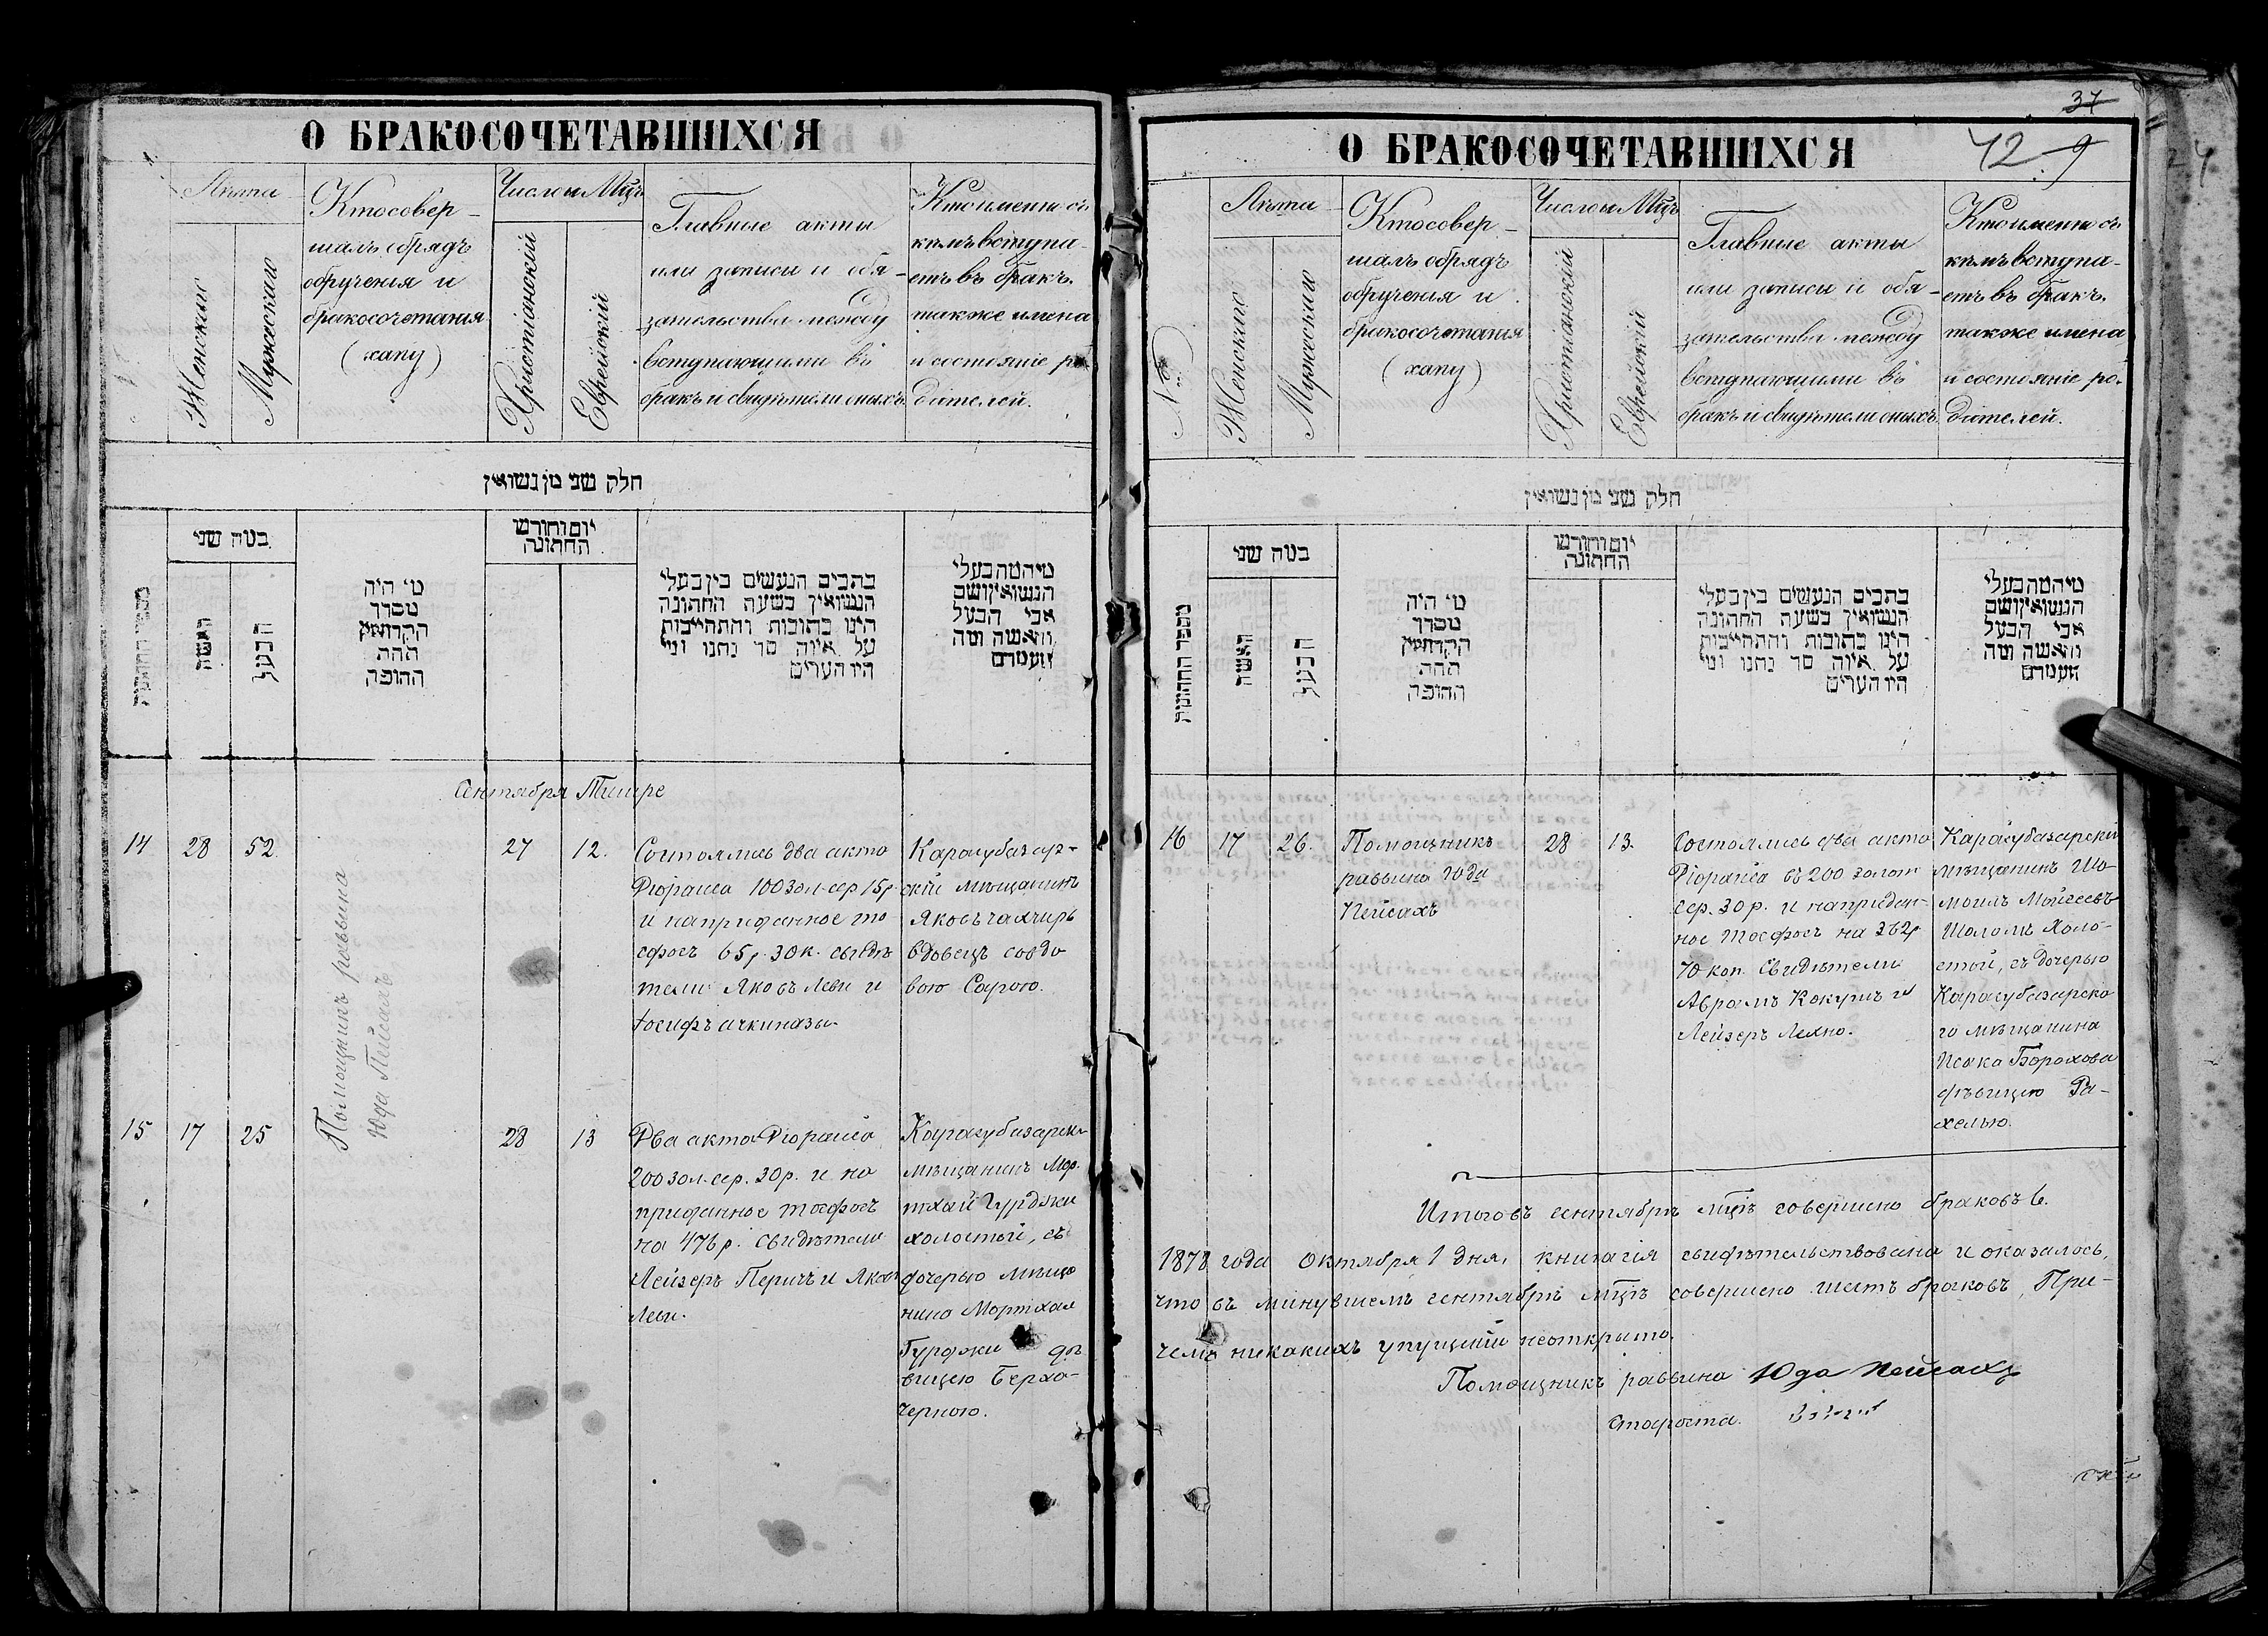 О БРАКОСОЧЕТАВШИХСЯ
Лѣта
Женскаго
Мужескаго
Кто совер-
шалъ обрядъ
обрученія и
бракосочетанія
(хапу)
Число и Мцъ
Христіанскій
Еврейскій
Главные акты
или записи и обя-
зательства между
вступающими въ
бракъ и свидѣтели оныхъ.
Кто именно съ
кѣмъ вступа-
етъ въ бракъ.
также имена
и состояніе ро-
дителей.
חלק שני מן נשואין
מספר החתונות
כמה שני
האשה
הבעל
מי היה
מסדר
הקדושין
תחת
החופה
יום וחודש
החתונה
כתבים הנעשים בין בעלי
הנשואין בשעה החתונה
הינו כתובות והתחייבות
על איזה סך נתנו ומי
היו העדים
מי המה בעלי
הנשואין ושם
אבי הבעל
והאשה ומה
מעמדם
Сентября Тишре
14 28 52.
Помощникъ раввина
Юда Пейсахъ
27 12.
Состоялись два акта
Гюраиса 100 зол. сер 15 р.
и на приданное то
сфосъ 65 р. 30 к. свидѣ
тели Яковъ Леви и
Іосифъ ачкинази.
Карасубазар-
скій мѣщанинъ
Яковъ Чахчиръ
вдовецъ со вдо
вою Сарою.
15 17 25
28 13
Два акта Гюраиса
200 зол. сер. 30 р. и на
приданное тосфосъ
на 476 р. свидѣтели
Лейзеръ Перичъ и Яковъ
Леви.
Карасубазарск
мѣщанинъ Мор-
тхай Гурджи
холостой, съ
дочерью мѣща
нина Мортхая
Гурджи дѣ
вицею Берха-
Черною.
37
42 9
О БРАКОСОЧЕТАВШИХСЯ
№
Лѣта
Женскаго
Мужескаго
Кто совер-
шалъ обрядъ
обрученія и
бракосочетанія
(хапу)
Число и Мцъ
Христіанскій
Еврейскій
Главные акты
или записи и обя-
зательства между
вступающими въ
бракъ и свидѣтели оныхъ.
Кто именно съ
кѣмъ вступа-
етъ въ бракъ.
также имена
и состояніе ро-
дителей.
חלק שני מן נשואין
מספר החתונות
כמה שני
האשה
הבעל
מי היה
מסדר
הקדושין
תחת
החופה
יום וחודש
החתונה
כתבים הנעשים בין בעלי
הנשואין בשעה החתונה
הינו כתובות והתחייבות
על איזה סך נתנו ומי
היו העדים
מי המה בעלי
הנשואין ושם
אבי הבעל
והאשה ומה
מעמדם
16 17 26.
Помощникъ
раввина Юда
Пейсахъ
28 13.
Состоялись два акта
Гюраиса въ 200 золот
сер. 30 р. и на придан-
ное тосфосъ на 362 р
70 коп. Свидѣтели
Аврамъ Кокушъ и
Лейзеръ Лехно.
Карасубазарскій
мѣщанинъ Шо-
моилъ Мойсеевъ
Шоломъ Холо-
стой, съ дочерью
Карасубазарска
го мѣщанина
Исака Борохова
дѣвицею Ра-
хелью.
Итого въ сентябрѣ мцѣ совершено браковъ 6.
1878 года Октября 1 дня, книга сія свидѣтельствована и оказалось,
что въ минувшемъ сентябрѣ мцѣ совершено шесть браковъ, При-
чемъ никакихъ упущеній неоткрыто.
Помощникъ раввина Юда Пейсахъ
Староста.